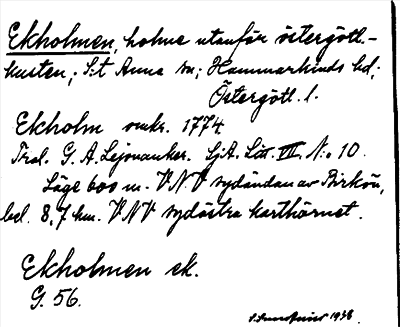 Ekholmen, holme utanför östergötl.-
kusten, S:t Anna sn, Hammarkinds hd,
Östergötl. l.
Ekholm omkr. 1774
Tral. G. A. Lejonanker. SjA. Litt. VII. No 10.
Läge 600 m. VNV sydändan av Birkön,
bel. 8,7 km. VNV sydöstra karthörnet.
Ekholmen ek.
G. 56.
1938